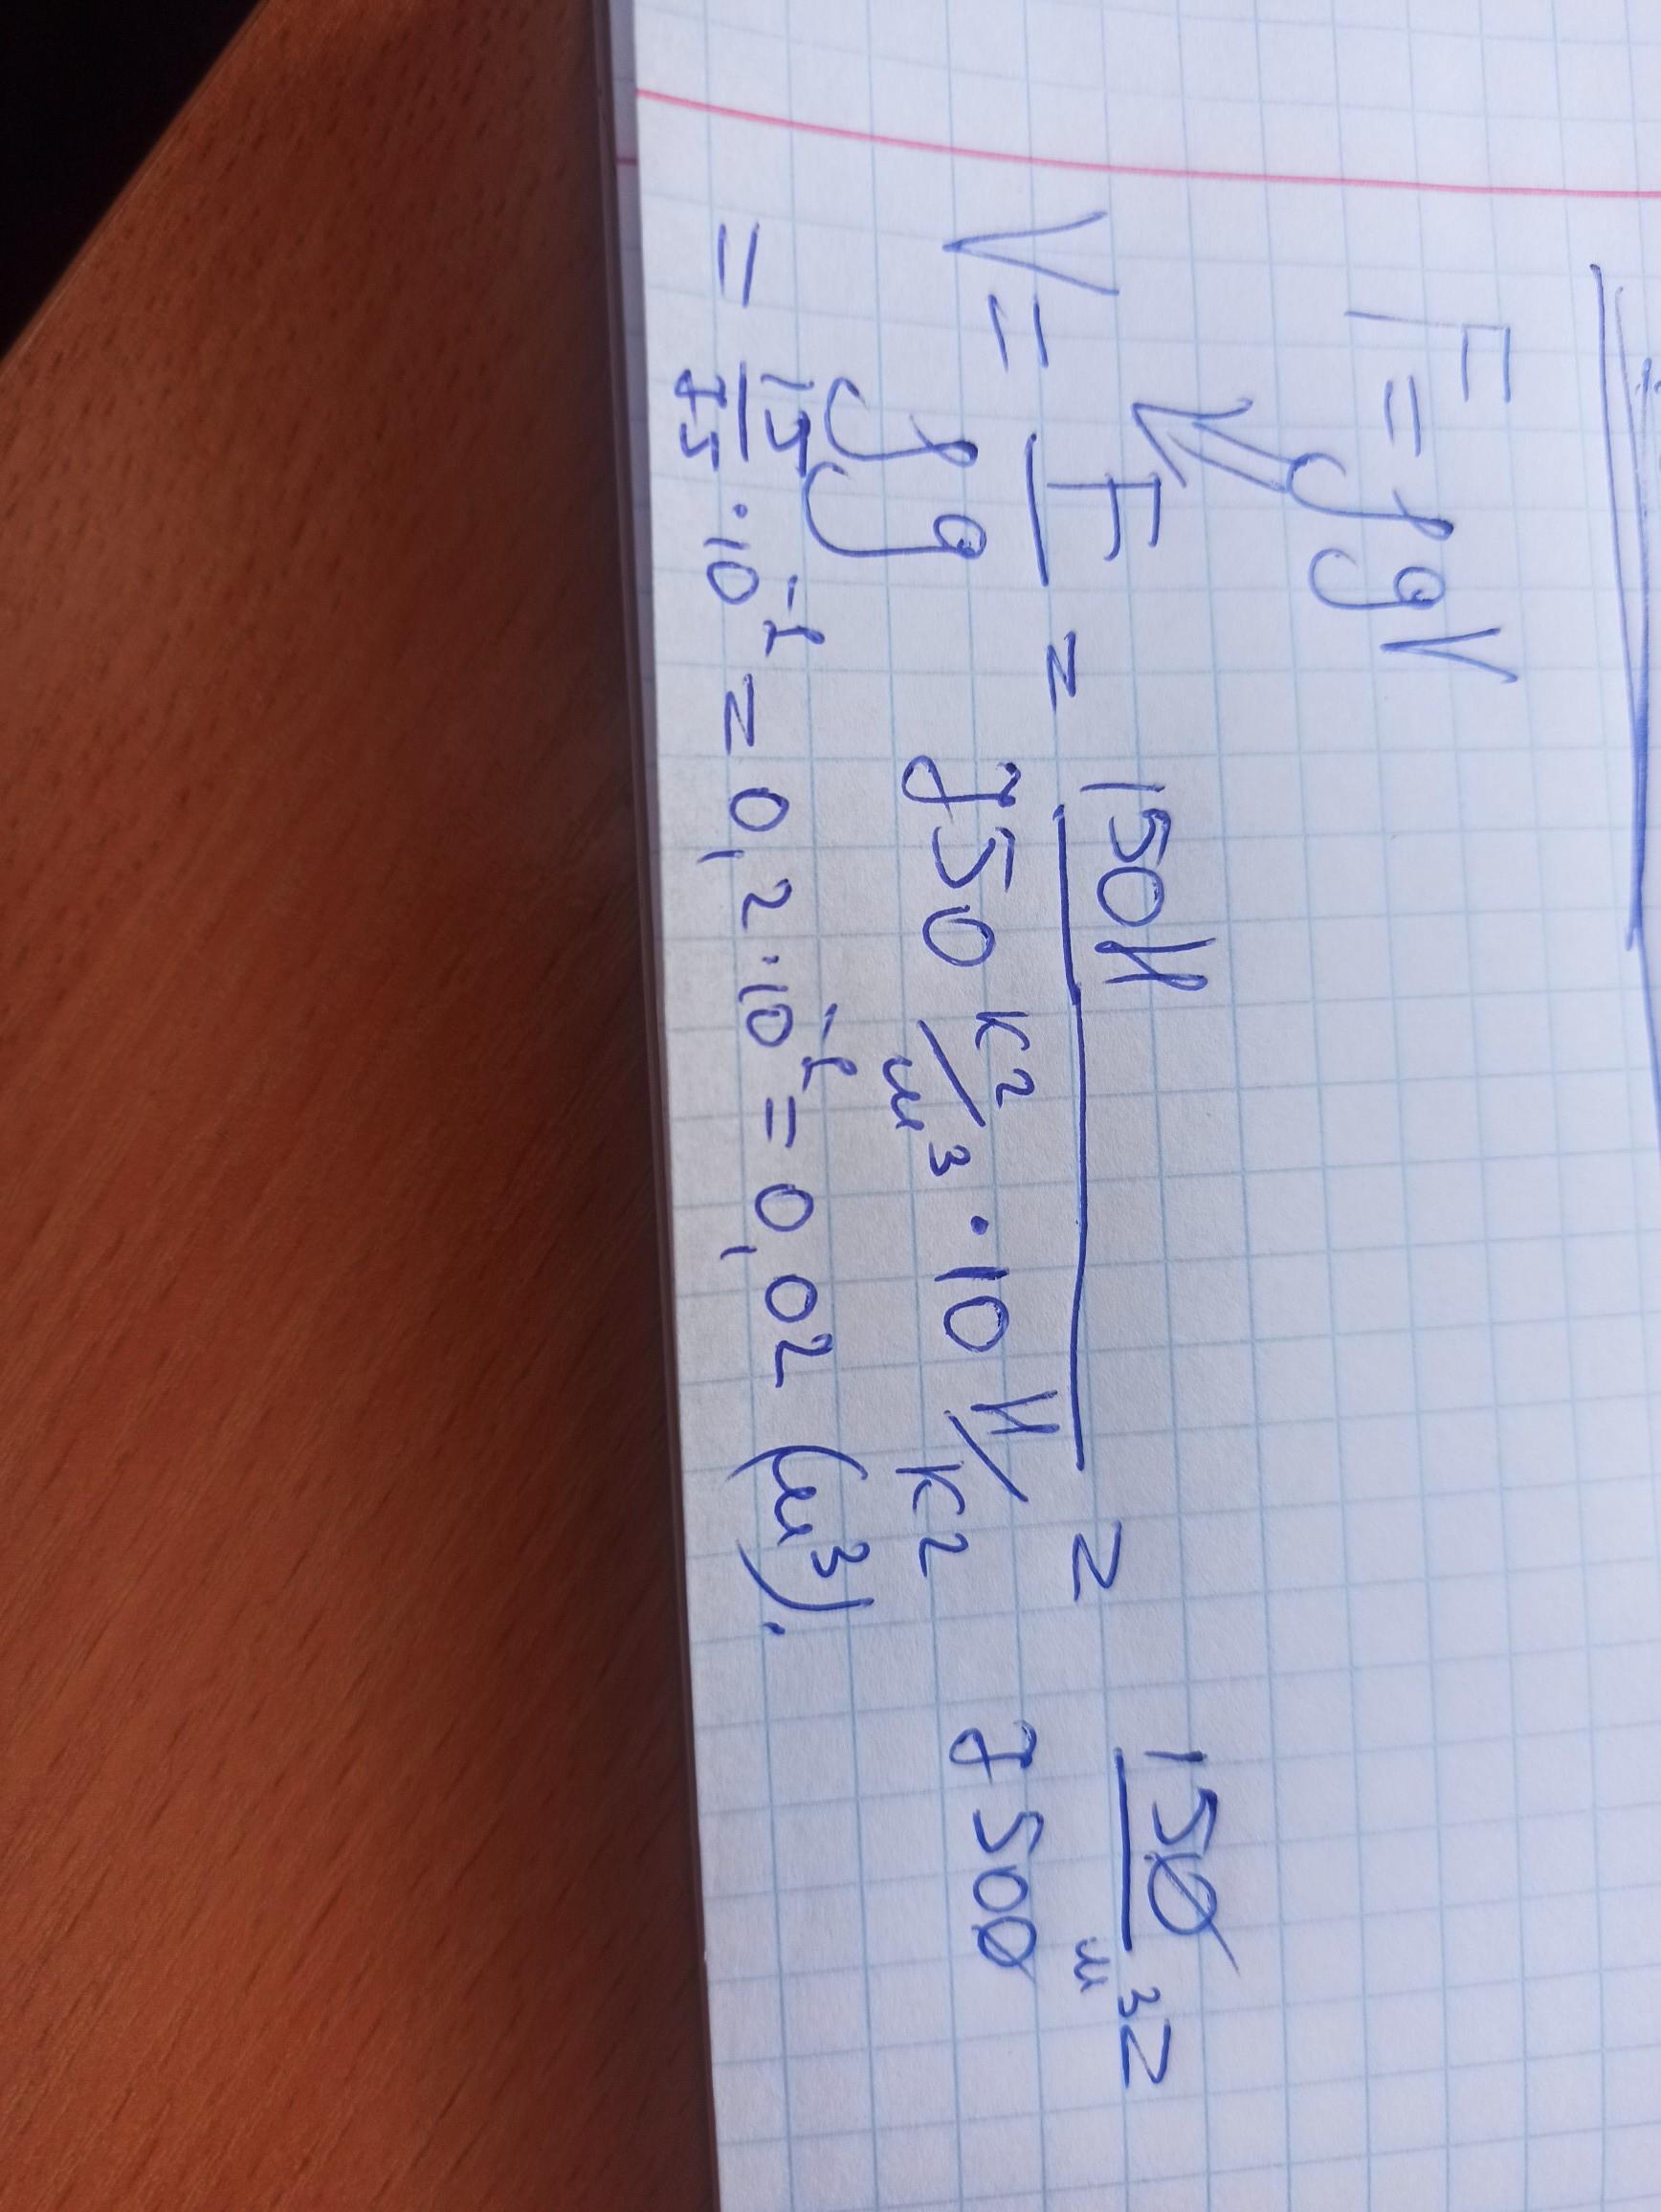 F = ρgV
V = F/ρg = 150Н/750 кг/м³ · 10 Н/кг = 150/7500 м³ =
= 15/75 · 10⁻¹ = 0,2 · 10⁻¹ = 0,02 (м³).